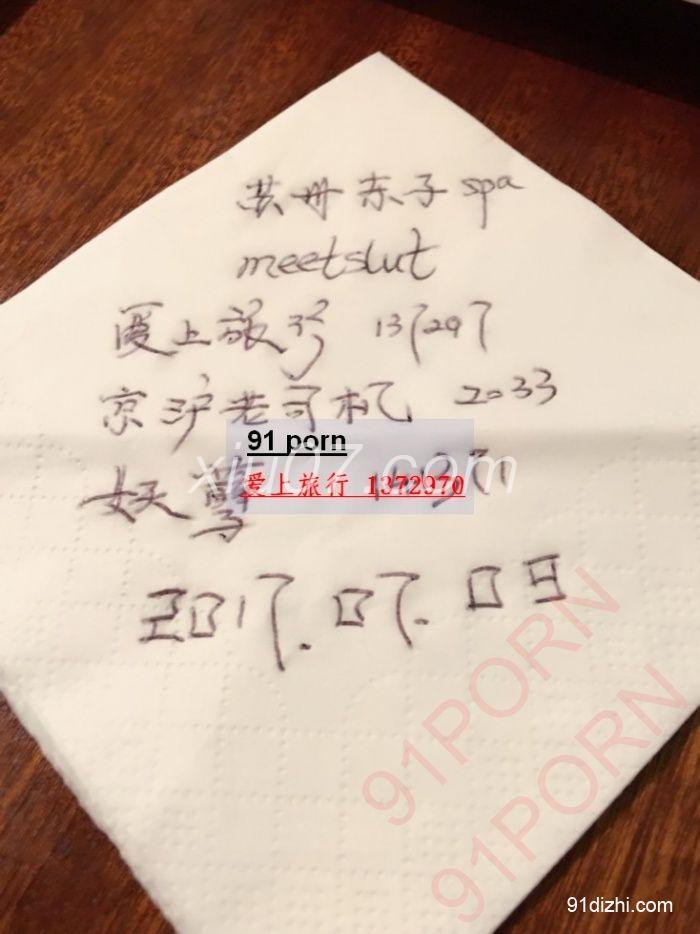 苏州东子spa
meetslut
爱上旅行 137297
京沪老司机 2033
91 porn
妖孽
爱上旅行 1372970
2017.07.09
91PORN
91PORN
91dizhi.com